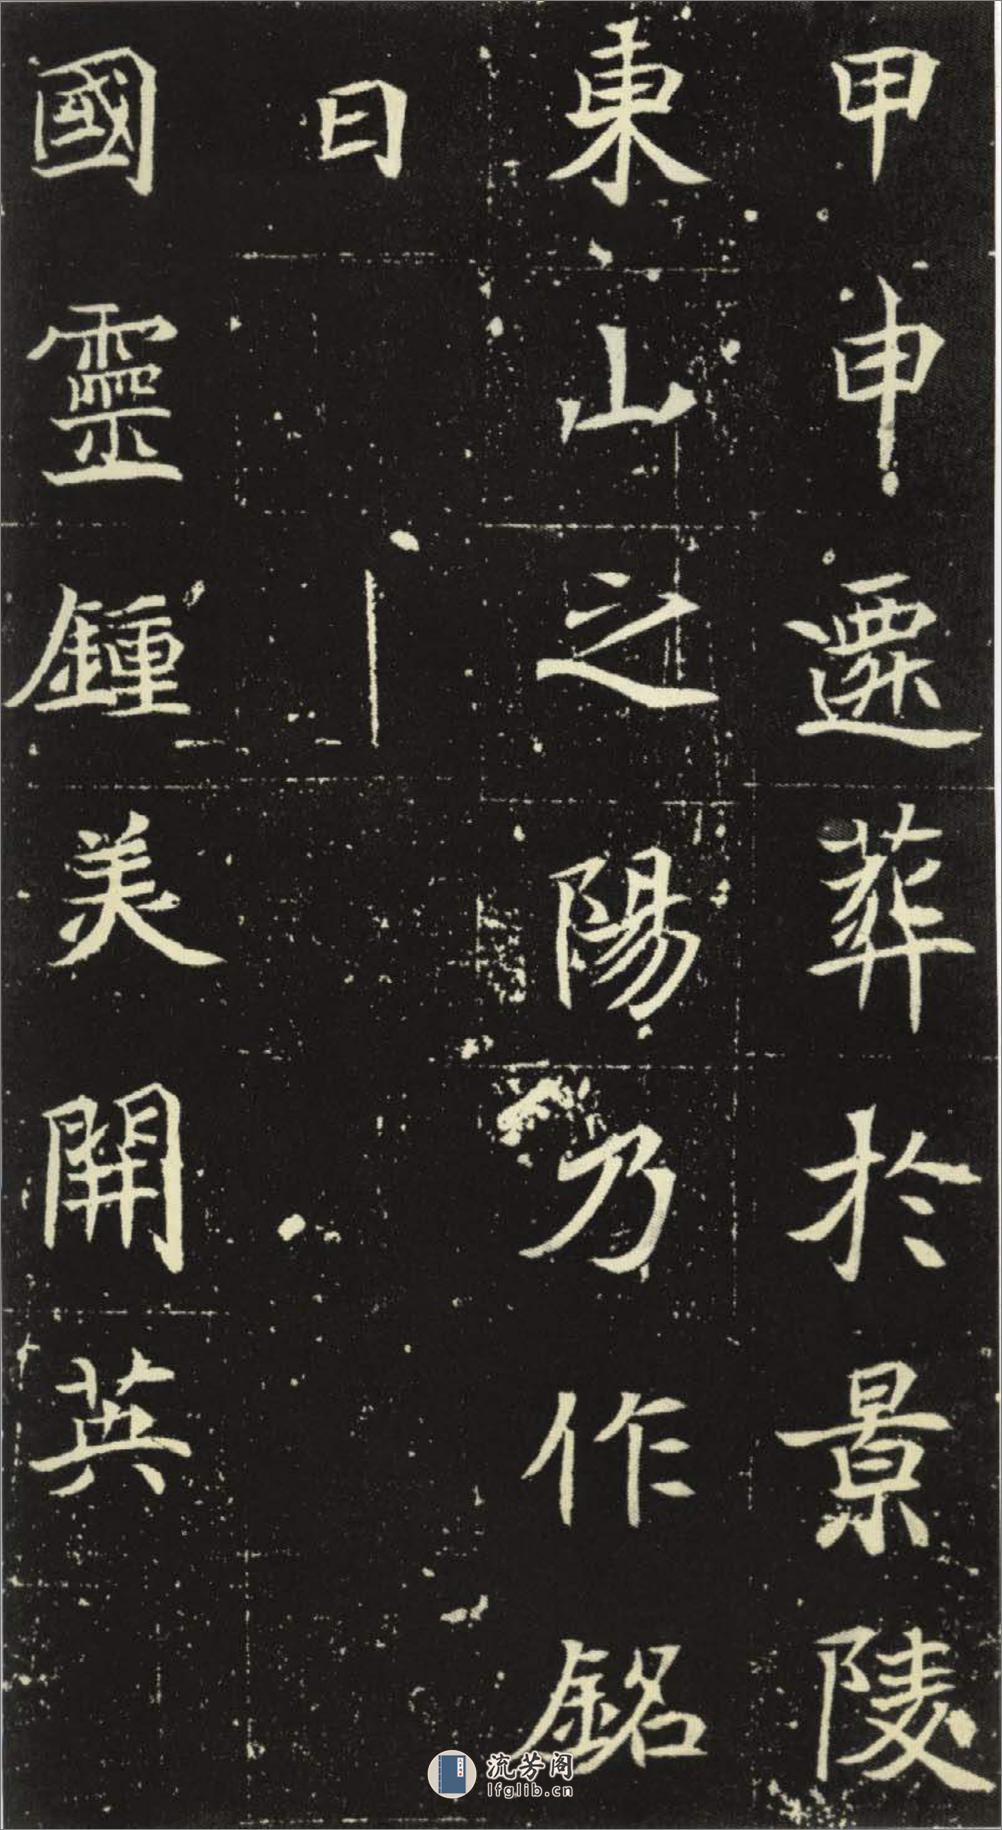 甲申遷葬於景陵
東山之陽乃作銘
曰
國靈鍾美開英
流芳阁
lfglib.cn